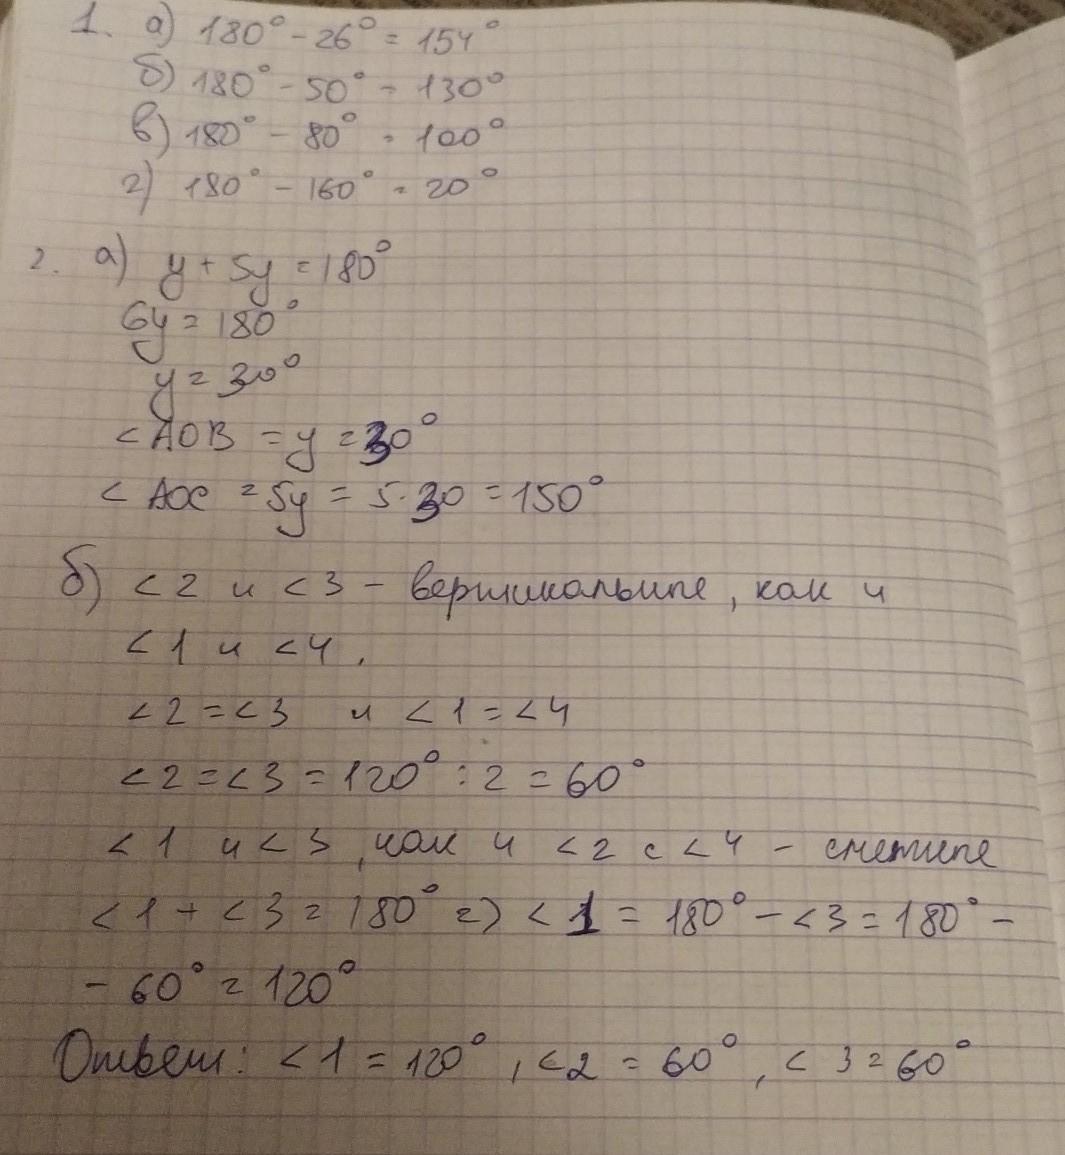 1. а) 180° - 26° = 154°
б) 180° - 50° = 130°
в) 180° - 80° = 100°
г) 180° - 160° = 20°
2. а) y + 5y = 180°
6y = 180°
y = 30°
<AOB = y = 30°
<AOC = 5y = 5·30 = 150°
б) <2 и <3 - вертикальные, как и
<1 и <4.
<2 = <3 и <1 = <4
<2 = <3 = 120° : 2 = 60°
<1 и <3, как и <2 с <4 - смежные
<1 + <3 = 180° => <1 = 180° - <3 = 180° -
- 60° = 120°
Ответ: <1 = 120°, <2 = 60°, <3 = 60°